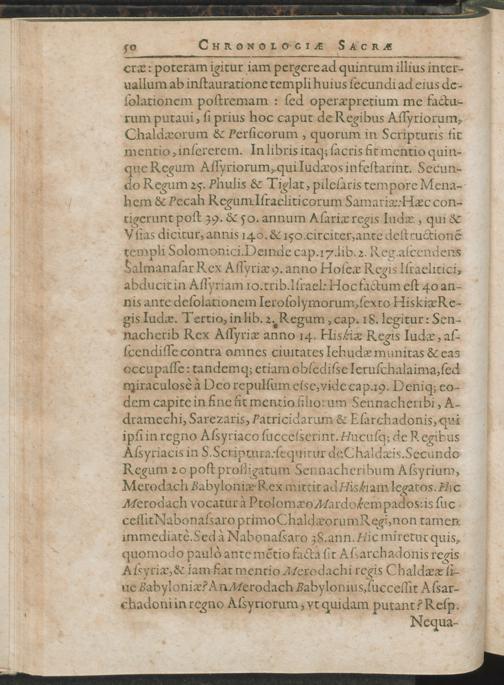 50 CHRONOLOGIÆ SACRÆ
cræ: poteram igitur iam pergere ad quintum illius inter-
uallum ab instauratione templi huius secundi ad eius de-
solationem postremam: sed operæpretium me factu-
rum putaui, si prius hoc caput de Regibus Assyriorum,
Chaldæorum & Persicorum, quorum in Scripturis fit
mentio, insererem. In libris itaq; sacris fit mentio quin-
que Regum Assyriorum, qui Iudæos infestarint. Secun-
do Regum 25. Phulis & Tiglat, pilesaris tempore Mena-
hem & Pecah Regum Israeliticorum Samariæ: Hæc con-
tigerunt post 39. & 50. annum Asariæ regis Iudæ, qui &
Vsias dicitur, annis 140. & 150. circiter, ante destructionē
templi Solomonici. Deinde cap. 17. lib. 2. Reg. ascendens
Salmanasar Rex Assyriæ 9. anno Hoseæ Regis Israelitici,
abducit in Assyriam 10. trib. Israel: Hoc factum est 40 an-
nis ante desolationem Ierosolymorum, sexto Hiskiæ Re-
gis Iudæ. Tertio, in lib. 2. Regum, cap. 18. legitur: Sen-
nacherib Rex Assyriæ anno 14. Hiskiæ Regis Iudæ, as-
scendisse contra omnes ciuitates Iehudæ munitas & eas
occupasse: tandemq; etiam obsedisse Ieruschalaima, sed
miraculosè à Deo repulsum esse, vide cap. 19. Deniq; eo-
dem capite in fine fit mentio filiorum Sennacheribi, A-
dramechi, Sarezaris, Patricidarum & Esarchadonis, qui
ipsi in regno Assyriaco successerint. Hucusq; de Regibus
Assyriacis in S. Scriptura: sequitur de Chaldæis. Secundo
Regum 20 post profligatum Sennacheribum Assyrium,
Merodach Babyloniæ Rex mittit ad Hiskiam legatos. Hic
Merodach vocatur à Ptolomæo Mardokempados: is suc
cessit Nabonassaro primo Chaldæorum Regi, non tamen
immediatè. Sed à Nabonassaro 38. ann. Hic miretur quis,
quomodo paulò ante mētio facta sit Assarchadonis regis
Assyriæ, & iam fiat mentio Merodachi regis Chaldææ si-
ue Babyloniæ? An Merodach Babylonius, successit Assar-
chadoni in regno Assyriorum, vt quidam putant? Resp.
Nequa-